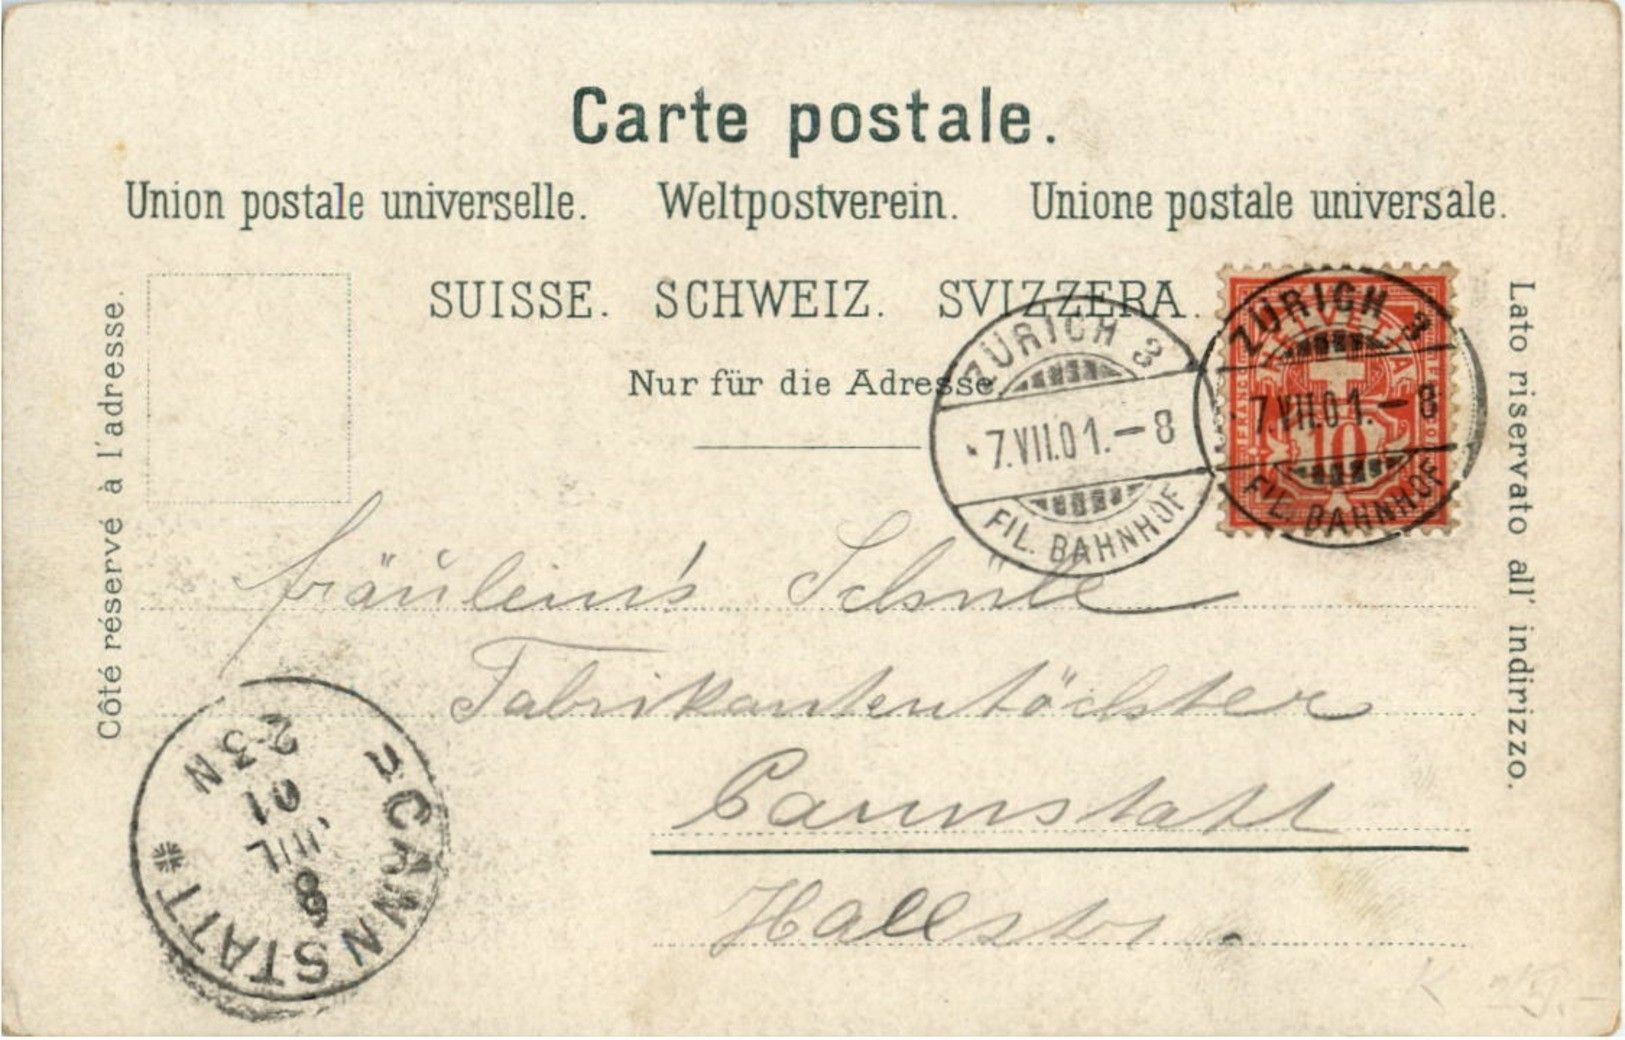 Carte postale.
Union postale universelle. Weltpostverein. Unione postale universale.
SUISSE. SCHWEIZ. SVIZZERA.
Nur für die Adresse.
Côté réservé à l'adresse.
Lato riservato all' indirizzo.
ZÜRICH 3
7.VII.01.-8
FIL. BAHNHOF
ZÜRICH 3
7.VII.01.-8
FIL. BAHNHOF
HELVETIA
FRANCO
10
Fräulein's Schüle
Fabrikantentöchter
Cannstatt
Hallstr.
CANNSTATT
8
JUL
01
2-3N